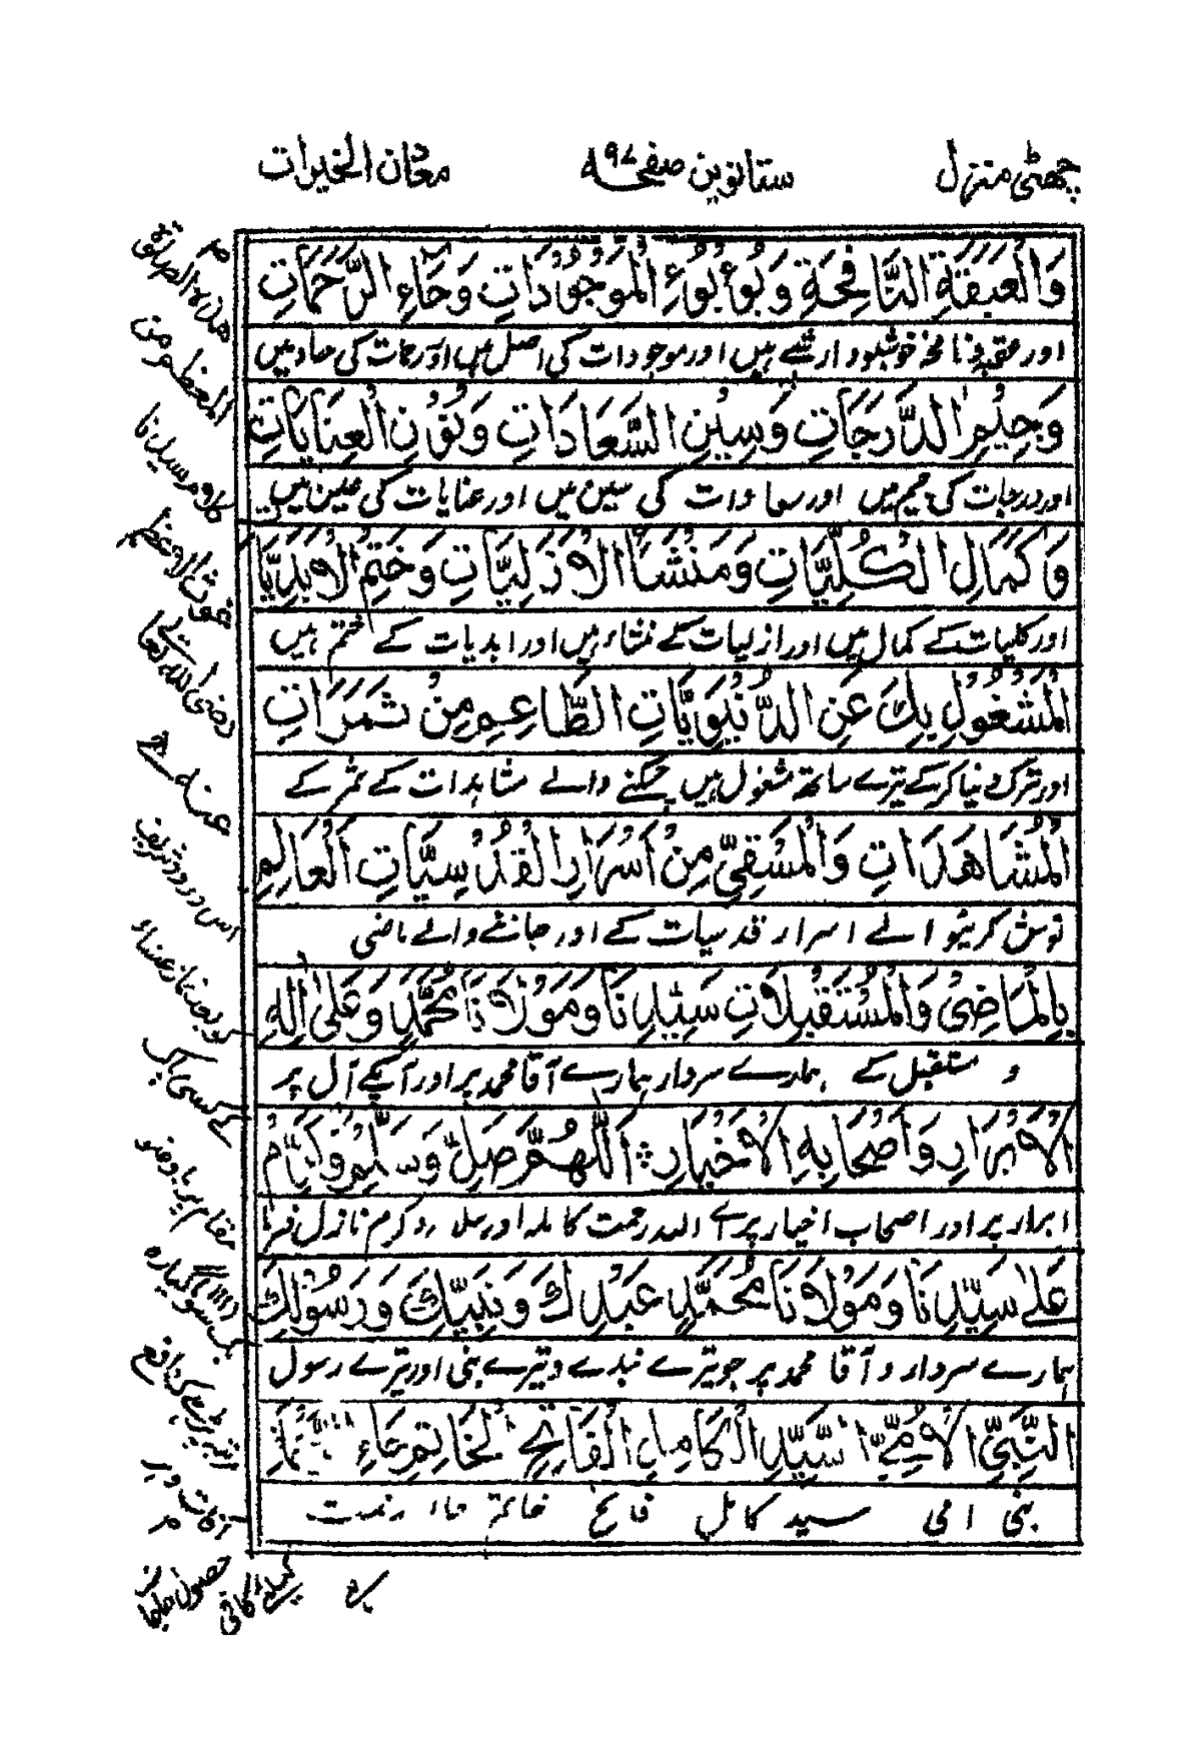 چھٹی منزل ستانویں صفحہ ۹۷ معدن الخیرات
وَالْعَبَقَةِ النَّافِحَةِ وَبُوْبُوْءِ الْمَوْجُوْدَاتِ وَحَاءِ الرَّحَمَاتِ
اور عقبہ نافحہ خوشبودار شے ہیں اور موجودات کی اصل ہیں اور رحمات کی حاء ہیں
وَجِيْمِ الدَّرَجَاتِ وَسِيْنِ السَّعَادَاتِ وَنُوْنِ الْعِنَايَاتِ
اور درجات کی جیم ہیں اور سعادات کی سین ہیں اور عنایات کی عین ہیں
وَكَمَالِ الْكُلِّيَّاتِ وَمَنْشَأِ الْاَزَلِيَّاتِ وَخَتْمِ الْاَبَدِيَّا
اور کلیات کے کمال ہیں اور ازلیات کے منشاء ہیں اور ابدیات کے ختم ہیں
الْمَشْغُوْلِ بِكَ عَنِ الدُّنْيَوِيَّاتِ الطَّاعِمِ مِنْ ثَمَرَاتِ
اور ترک دنیا کرکے تیرے ساتھ مشغول ہیں چکنے والے مشاہدات کے ثمر کے
الْمُشَاهَدَاتِ وَالْمَسْقِيِّ مِنْ اَسْرَارِ الْقُدُسِيَّاتِ الْعَالِمِ
نوش کرنیوالے اسرار قدسیات کے اور جاننے والے ماضی
بِالْمَاضِيْ وَالْمُسْتَقْبِلَاتِ سَيِّدِنَا وَمَوْلَانَا مُحَمَّدٍ وَعَلٰى اٰلِهِ
و مستقبل کے ہمارے سردار ہمارے آقا محمد پر اور آپکے آل پر
الْاَبْرَارِ وَاَصْحَابِهِ الْاَخْيَارِ اَللّٰهُمَّ صَلِّ وَسَلِّمْ وَكَرِّمْ
ابرار پر اور اصحاب اخیار پر اے اللہ رحمت کاملہ اور سلام و کرم نازل فرما
عَلٰى سَيِّدِنَا وَمَوْلَانَا مُحَمَّدٍ عَبْدِكَ وَنَبِيِّكَ وَرَسُوْلِكَ
ہمارے سردار و آقا محمد پر جو تیرے بندے و تیرے نبی اور تیرے رسول
النَّبِيِّ الْاُمِّيِّ السَّيِّدِ الْكَامِلِ الْفَاتِحِ الْخَاتِمِ حَاءِ
نبی امی سید کامل فاتح خاتم حاء رحمت
هذه الصلوٰة
المعظم من
کلام سیدنا
غوث الاعظم
رضی اللہ تعا
عنہ ہے
اس درود شریف
کو بعد نماز عشاء
کے کسی پاک
مقام پر با وضو
(۱۱۱) سو گیارہ
مرتبہ پڑھے کہ دافع
آفات و
حصول
کیلئے کافی
ہے